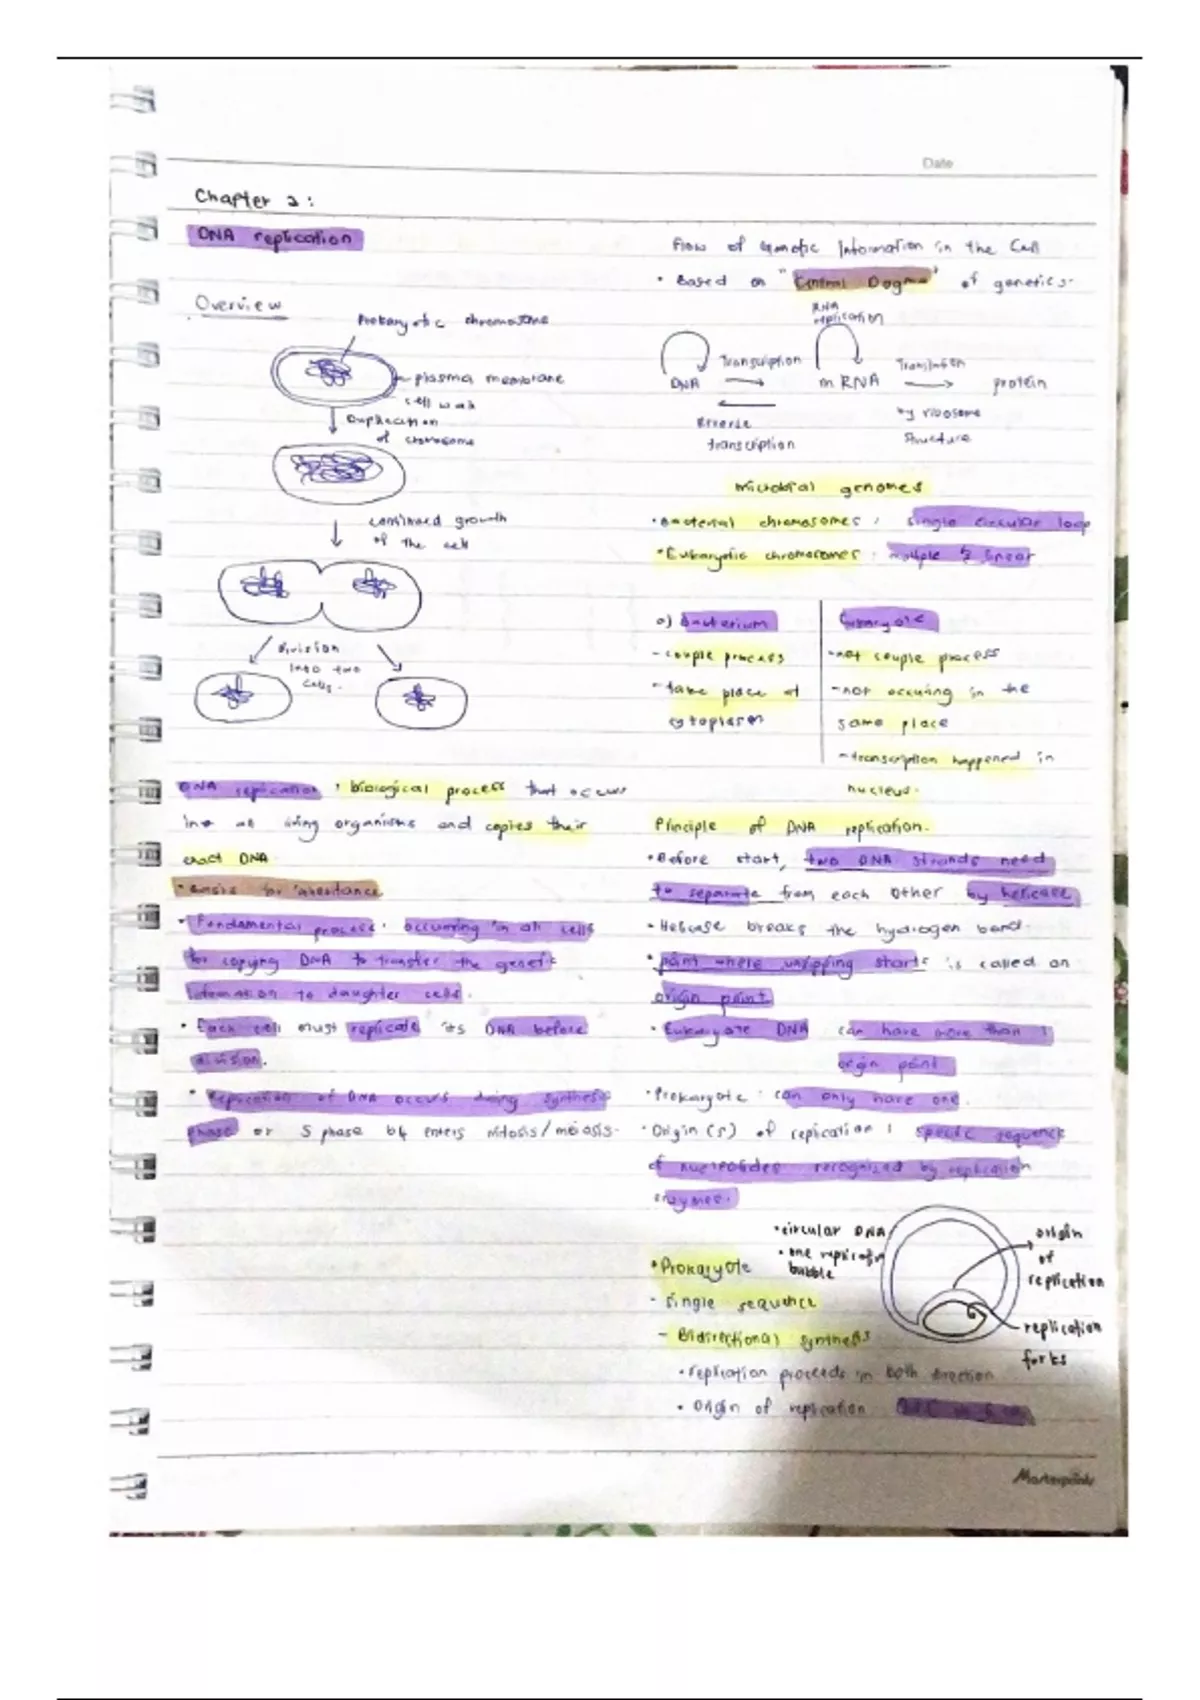 Date
Chapter 2:
DNA replication
Overview
Prokaryotic chromosome
plasma membrane
cell wall
Duplication
of chromosome
continued growth
of the cell
division
into two
cells.
DNA replication : biological process that occurs
in all living organisms and copies their
exact DNA
• Basis for inheritance
• Fundamental process : occurring in all cells
for copying DNA to transfer the genetic
information to daughter cells.
• Each cell must replicate its DNA before
division.
• Replication of DNA occurs during synthesis
phase or S phase b4 enters mitosis/meiosis.
Flow of Genetic Information in the Cell
• Based on "Central Dogma" of genetics.
RNA
replication
DNA
Transcription
mRNA
Translation
protein
Reverse
transcription
by ribosome
structure
microbial genomes
• Bacterial chromosomes : single circular loop
• Eukaryotic chromosomes : multiple & linear
a) Bacterium
- couple process
- take place at
cytoplasm
Eukaryote
- not couple process
- not occuring in the
same place
- transcription happened in
nucleus.
Principle of DNA replication.
• Before start, two DNA strands need
to separate from each other by helicase
• Helicase breaks the hydrogen bond.
• point where unzipping starts is called an
origin point
• Eukaryote DNA can have more than 1
origin point
• Prokaryote : can only have one.
• Origin (s) of replication : specific sequence
of nucleotides recognized by replication
enzymes.
• circular DNA
• one replication
bubble
origin
of
replication
replication
forks
• Prokaryote
- single sequence
- Bidirectional synthesis
• replication proceeds in both direction
• Origin of replication
Masterprints